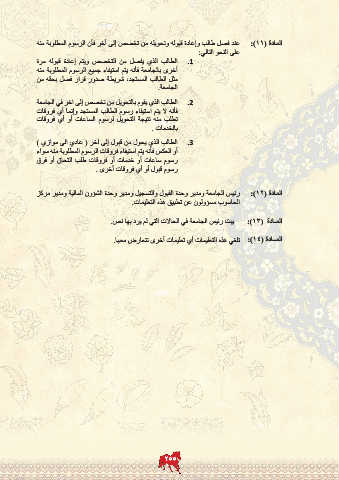 المادة (١١): عند فصل طالب وإعادة قبوله وتحويله من تخصص إلى آخر فأن الرسوم المطلوبة منه
على النحو التالي:
1. الطالب الذي يفصل من التخصص ويتم إعادة قبوله مرة
أخرى بالجامعة فأنه يتم استيفاء جميع الرسوم المطلوبة منه
مثل الطالب المستجد، شريطة صدور قرار فصل بحقه من
الجامعة.
2. الطالب الذي يقوم بالتحويل من تخصص إلى آخر في الجامعة
فأنه لا يتم استيفاء رسوم الطالب المستجد وإنما أي فروقات
تطلب منه نتيجة التحويل لرسوم الساعات أو أي فروقات
بالخدمات .
3. الطالب الذي يحول من قبول إلى آخر ( عادي الى موازي )
أو العكس فأنه يتم استيفاء فروقات الرسوم المطلوبة منه سواء
رسوم ساعات أو خدمات أو فروقات طلب التحاق أو فرق
رسوم قبول أو أي فروقات أخرى .
المادة (١٢): رئيس الجامعة ومدير وحدة القبول والتسجيل ومدير وحدة الشؤون المالية ومدير مركز
الحاسوب مسؤولون عن تطبيق هذه التعليمات.
المادة (١٣): يبت رئيس الجامعة في الحالات التي لم يرد بها نص.
المادة (١٤): تلغي هذه التعليمات أي تعليمات أخرى تتعارض معها.
٢٥٥